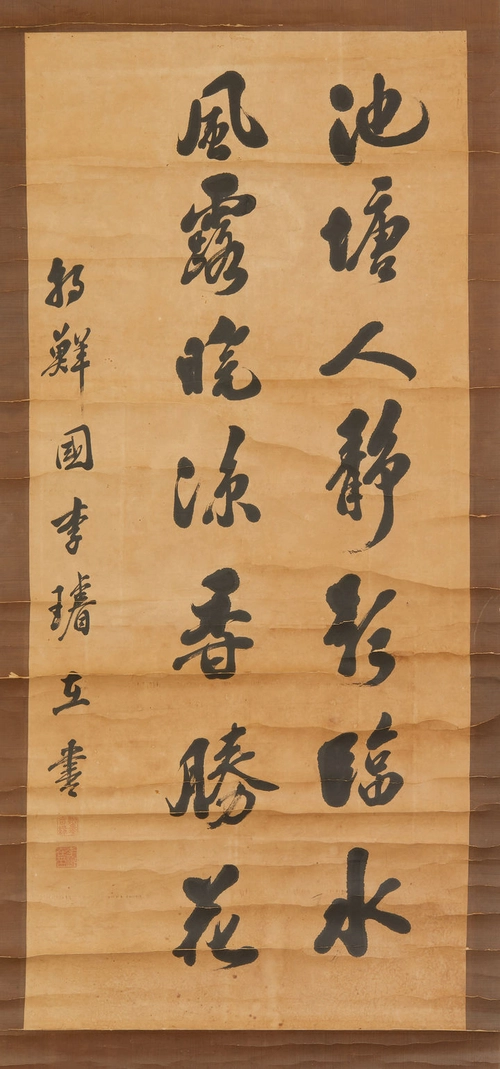 池塘人靜影臨水
風露晚涼香勝花
朝鮮國李璿書